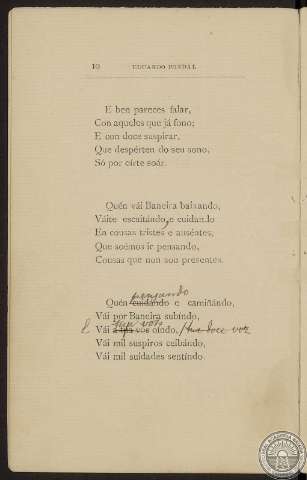 10 EDUARDO PONDAL
E ben pareces falar,
Con aqueles que já fono;
E con doce suspirar,
Que despérten do seu sono,
Só por oírte soár.
Quén vái Baneira baixando,
Váite escoitándo, e cuidando
En cousas tristes e auséntes,
Que soémos ir pensando,
Cousas que non son presentes.
pensando
Quén cuidando e camiñándo,
Vái por Baneira subíndo,
E Vái a tua vos oíndo, / tua doce voz
Vái mil suspiros ceibándo,
Vái mil suidades sentíndo